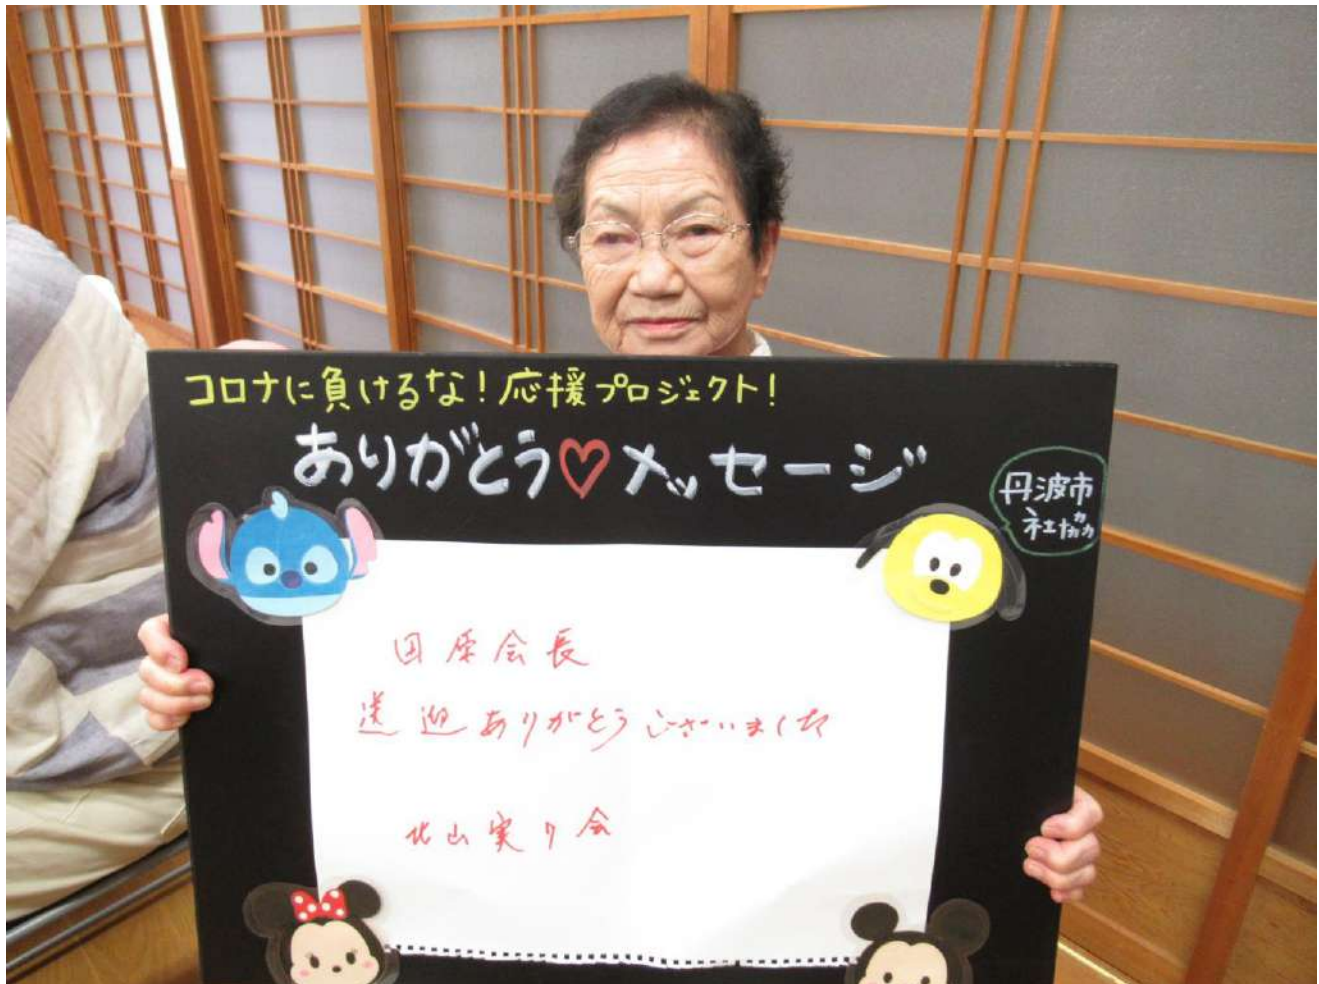 コロナに負けるな!応援プロジェクト!
ありがとう♡メッセージ
丹波市
社協
田原会長
送迎ありがとうございました
北山実り会